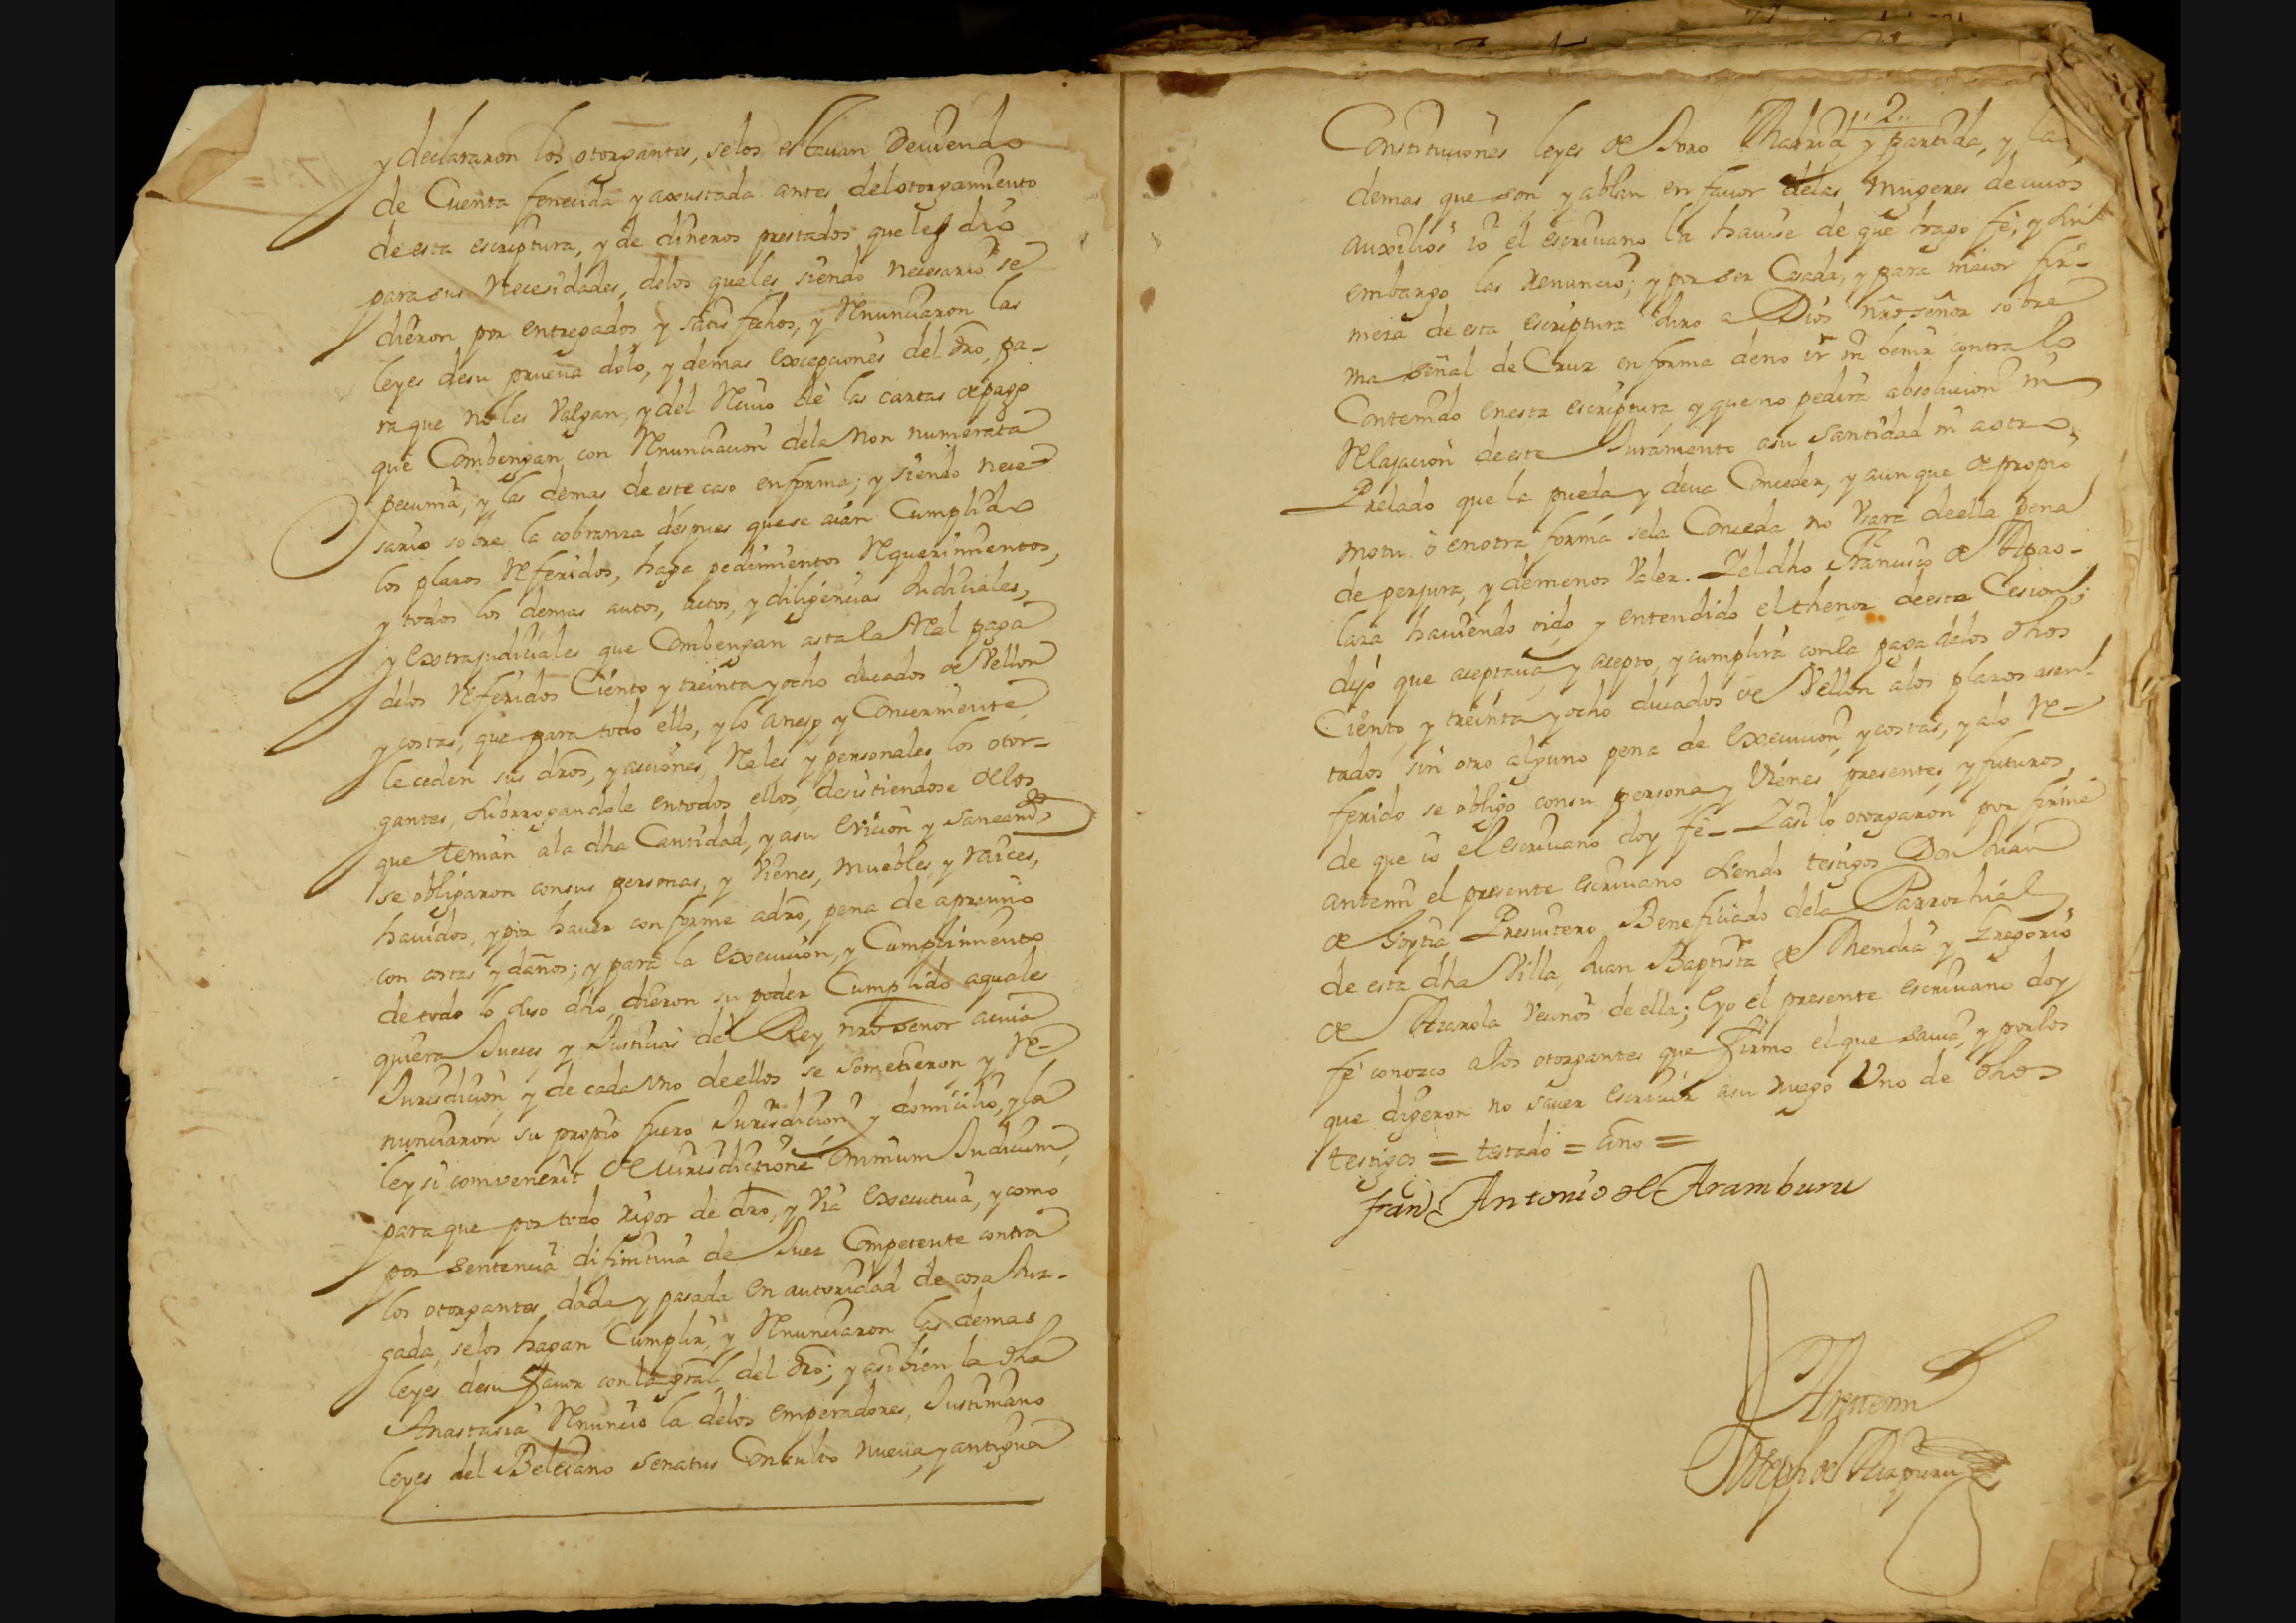 y declararon los otorgantes, selos estauan deuiendo
de Cuenta fenecida y axustada antes del otorgamiento
de esta escriptura, y de dineros prestados que les dio
para sus necesidades, delos quales siendo necesario se
dieron por entregados y satisfechos, y Renunciaron las
leyes desu prueua dolo, y demas excepciones del dro, pa-
ra que no les Valgan, y del Reciuo de las cartas de pago
que Combengan con Renunciacion dela non numerata
pecunia, y las demas de este caso en forma; y siendo nece-
sario sobre la cobranza despues que se aian Cumplido
los plazos Referidos, haga pedimientos Requerimientos,
y todos los demas autos, actos, y diligencias Judiciales,
y extrajudiciales que Combengan asta la Real paga
delos Referidos Ciento y treinta y ocho ducados de Vellon
y costas, que para todo ello, y lo anejo y Concerniente
le ceden sus dros, y acciones, Reales y personales los otor-
gantes, subrrogandole entodos ellos, desistiendose delos
que tenian ala dha Cantidad, y asu evicion y saneamto
se obligaron consus personas, y Vienes, muebles, y raices,
hauidos, y por hauer conforme adro, pena de apremio
con costas y daños; y para la execucion, y Cumplimiento
de todo lo suso dho, dieron su poder Cumplido aquales
quiera Jueces, y Justicias del Rey nro señor acuia
Jurisdicion, y de cada Vno deellos se sometieron, y Re-
nunciaron su propio fuero Jurisdicion y domicilio, y la
ley si combenerit de iurisdictione omnium Judicum,
para que por todo rigor de dro, y Via executiua, y como
por sentencia difinitiua de Juez Competente contra
los otorgantes dada, y pasada en autoridad de cosa Juz-
gada, selos hagan Cumplir, y Renunciaron las demas
leyes desu fauor con la gral del dro; y asi bien la dha
Anastasia Renuncio la delos emperadores, Justiniano
leyes del Beleiano senatus Consulto nueua, y antigua
..2..
Constituciones leyes de Toro Madrid y partida, y las
demas que son y ablan en fauor delas mugeres de cuios
auxilios io el escriuano la hauise de que hago fe, y sin
embargo las Renuncio; y por ser Casada, y para maior fir-
meza de esta escriptura Juro a Dios nro señor sobre
vna señal de Cruz en forma deno ir ni benir contra lo
Contenido enesta escriptura, y que no pedira absolucion ni
Relajacion de este Juramento asu Santidad ni aotro
Prelado que la pueda y deua Conceder, y aunque de propio
motu ò enotra forma sela Conceda no Vsara deella pena
de perjura, y demenos Valer. Y el dho Francisco de Apao-
laza hauiendo oido y entendido el thenor de esta Cesion;
dijo que aceptaua y acepto, y cumplira con la paga delos dhos
Ciento y treinta y ocho ducados de Vellon alos plazos asen-
tados sin otro alguno pena de execucion y costas, y alo Re-
ferido se obligo consu persona y Vienes presentes y futuros,
de que io el escriuano doy fe- Y asi lo otorgaron por firme
antemi el presente escriuano siendo testigos Don Juan
de Goytia Presuitero Beneficiado dela Parrochial
de esta dha Villa, Juan Baptista de Mendia y Gregorio
de Azarola Vecinos de ella; e yo el presente escriuano doy
fe conozco alos otorgantes que firmo el que sauia, y por los
que digeron no sauer escriuir asu ruego Vno de dhos
testigos = testado = año =
Juan Antonio de Aramburu
Antemi
Joseph de Aizpuru